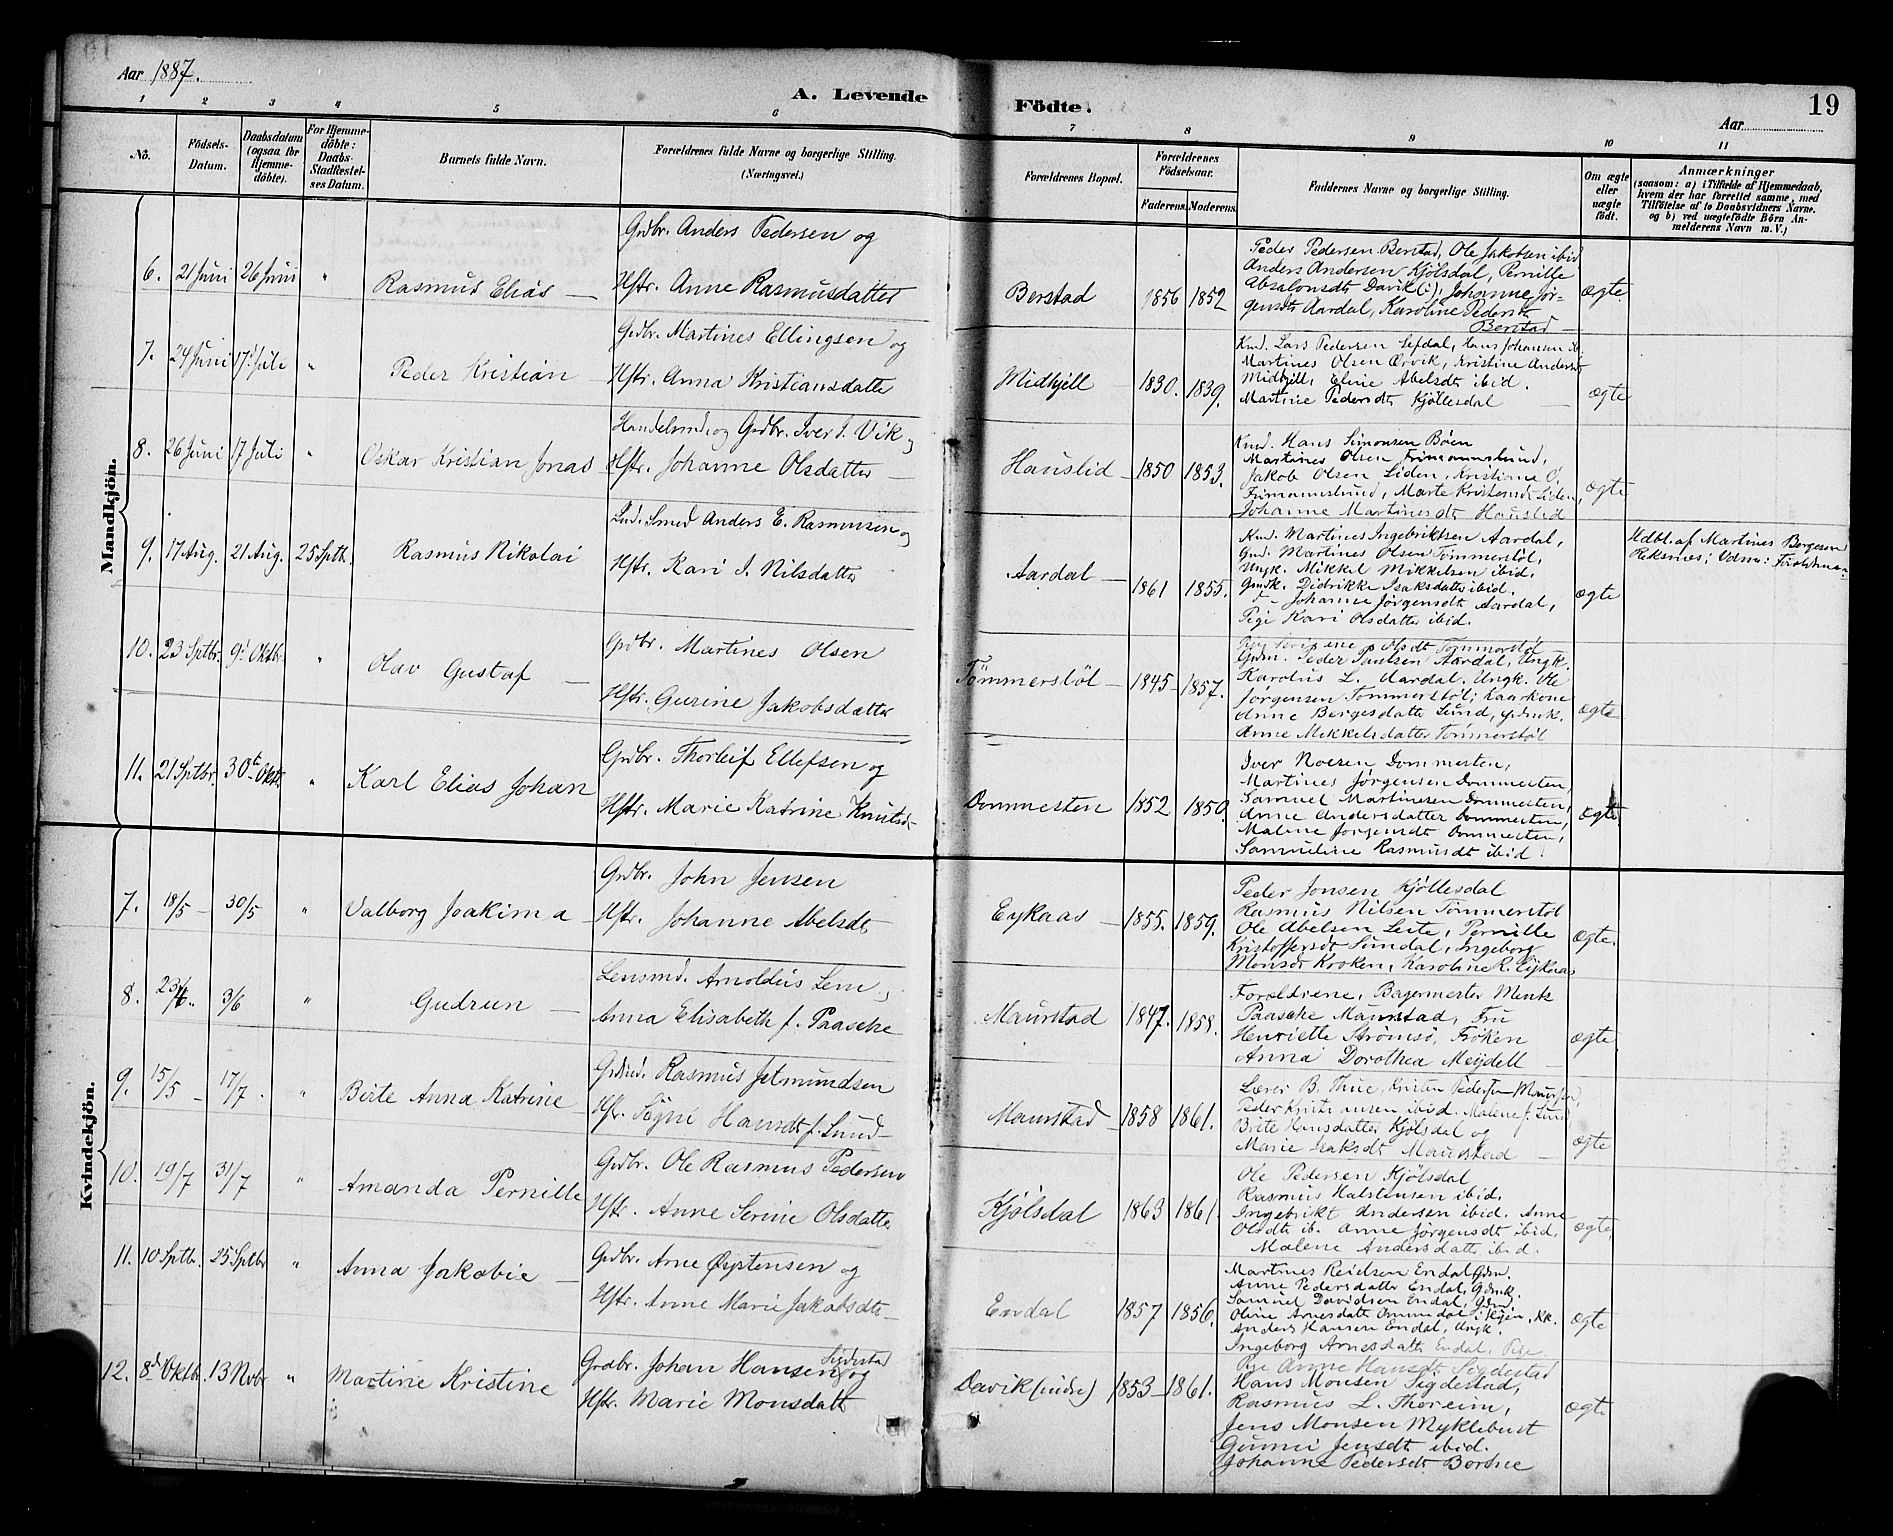 Aar 1887.
A. Levende Födte.
19
Aar
1 2 3 4 5 6 7 8 9 10 11
No.
Födsels-Datum.
Daabsdatum (ogsaa for Hjemme-döbte).
For Hjemme-döbte: Daabs-Stadfæstel-ses Datum.
Barnets fulde Navn.
Forældrenes fulde Navne og borgerlige Stilling. (Næringsvei.)
Forældrenes Bopæl.
Forældrenes Födselsaar.
Faderens. Moderens.
Faddernes Navne og borgerlige Stilling.
Om ægte eller uægte födt.
Anmærkninger
(saasom: a) i Tilfælde af Hjemmedaab, hvem der har forrettet samme, med Tilföielse af to Daabsvidners Navne, og b) ved uægtefödte Börn An-melderens Navn m. V.)
Mandkjön.
6. 21 Juni 26 Juni " Rasmus Elias —
Grdbr. Anders Pedersen og
Hstr. Anne Rasmusdatter
Berstad 1856 1852
Peder Pedersen Berstad, Ole Jakobsen ibid
Anders Andersen Kjölsdal, Pernille
Absalonsdt Davik (i), Johanne Jör-
gensdt Aardal, Karoline Pedersdt
Berstad —
ægte
7. 24 Juni 17 Juli " Peder Kristian
Grdbr. Martines Ellingsen og
Hstr. Anna Kristiansdatter
Midhjell 1830. 1839.
Kmd. Lars Pedersen Lefdal, Hans Johannsen ib.
Martines Olsen Ørvik, Kristine Andersdt
Midhjell, Eline Abelsdt ibid.
Martine Pedersdt Kjöllesdal —
ægte
8. 26 Juni 17 Juli " Oskar Kristian Jonas
Handelsmd. og Grdbr. Iver I. Vik og
Hstr. Johanne Olsdatter —
Hauslid 1850 1853.
Kmd. Hans Simonsen Böen
Martines Olsen Frimannslund,
Jakob Olsen Liden, Kristiane O.
Frimannslund, Marte Kristensdt Liden,
Johanne Martinesdt Hauslid
ægte
9. 17 Aug. 21 Aug. 25 Sptb. Rasmus Nikolai
Ind. Smed Anders E. Rasmussen og
Hstr. Kari I. Nilsdatter
Aardal — 1861 1855.
Kmd. Martines Ingebriktsen Aardal,
Gmd. Martines Olsen Tömmerstöl,
Ungk. Mikkel Mikkelsen ibid.
Gmdk. Didrikke Isaksdatter ibid.
d— Johanne Jörgensdt Aardal,
Pige Kari Olsdatter ibid.
ægte
Hdbt. af Martines Börgesen
Reksnes; Vidn: Forældrene
10. 23 Sptbr. 9d Oktbr " Olav Gustaf —
Grdbr. Martines Olsen
Hstr. Gurine Jakobsdatter
Tömmerstöl — 1845 — 1857.
Olsdt Tömmerstöl
Gdm. Peder Paulsen Aardal, Ungk.
Karolus L. Aardal. Ungk. Ole
Jörgensen Tömmerstöl; Kaarkone
Anne Bergesdatter Lund, Gdmk.
Anne Mikkelsdatter Tömmerstöl
ægte
11. 21 Sptbr. 30te Oktb. " Karl Elias Johan
Grdbr. Thorleif Ellefsen og
Hstr. Marie Katrine Knutsd.
Dommesten 1852 1850.
Iver Noesen Dommesten,
Martines Jörgensen Dommesten,
Samuel Martinesen Dommesten,
Anne Andersdatter Dommesten,
Malene Jörgensdt Dommesten,
Samueline Rasmusdt ibid.
ægte.
Kvindekjön.
7. 18/5 — 30/5 " Valborg Joakima —
Grdbr. John Jensen
Hstr. Johanne Abelsdt.
Eykaas — 1855. 1859.
Peder Jonsen Kjöllesdal
Rasmus Nilsen Tömmerstöl
Ole Abelsen Leite, Pernille
Kristoffersdt Sundal, Ingeborg
Monsdt Kroken, Karoline R. Eykaas
ægte.
8. 3/6 " Gudrun —
Lensmd. Arnoldus Lem
Anna Elisabeth f. Paasche
Maurstad 1847. 1858.
Forældrene, Bagermester Menk
Paasche Maurstad, Fru
Henriette Strömsö, Fröken
Anna Dorothea Meydell —
ægte.
9. 15/5 — 17/7. " Birte Anna Katrine
Rasmus Jetmundsen
Hstr. Sögni Hansdt f. Lund —
Maurstad — 1858 1861.
Lærer B. Thue, Kristen Pedersen Maurstad,
Peder Kristensen ibid. Malene f. Lund
Brite Hansdatter Kjölsdal og
Marie Isaksdt Maurstad —
ægte
10. 19/7 31/7 " Amanda Pernille
Grdbr. Ole Rasmus Pedersen
Hstr. Anne Serine Olsdatter
Kjölsdal 1863 1861.
Ole Pedersen Kjölsdal
Rasmus Halstensen ibid.
Ingebrikt Andersen ibid. Anne
Olsdt ib. Anne Jörgensdt ibid,
Malene Andersdatt ibid.
ægte.
11. 10 Sptbr. 25 Sptbr " Anna Jakobie —
Grdbr. Arne Öystensen og
Hstr. Anne Marie Jakobsdt —
Endal 1857 1856.
Martines Reielsen Endal Gdm.
Anne Pedersdatter Endal, Gdmk.
Samuel Davidsen Endal, Gdm.
Oline Arnesdatt Ommedal i Hyen, KK.
Anders Hansen Endal, Ungk.
Ingeborg Arnesdatt Endal, Pige.
ægte
12. 8d Oktbr. 13 Nvbr " Martine Kristine
Grdbr. Johan Hansen Sigdestad og
Hstr. Marie Monsdatt
Davik (indre) 1853 — 1861.
Pige Anne Hansdt Sigdestad
Hans Monsen Sigdestad,
Rasmus L. Thoreim,
Jens Monsen Myklebust
Gunni Jensdt ibid.
Johanne Pedersdt Bortne
ægte